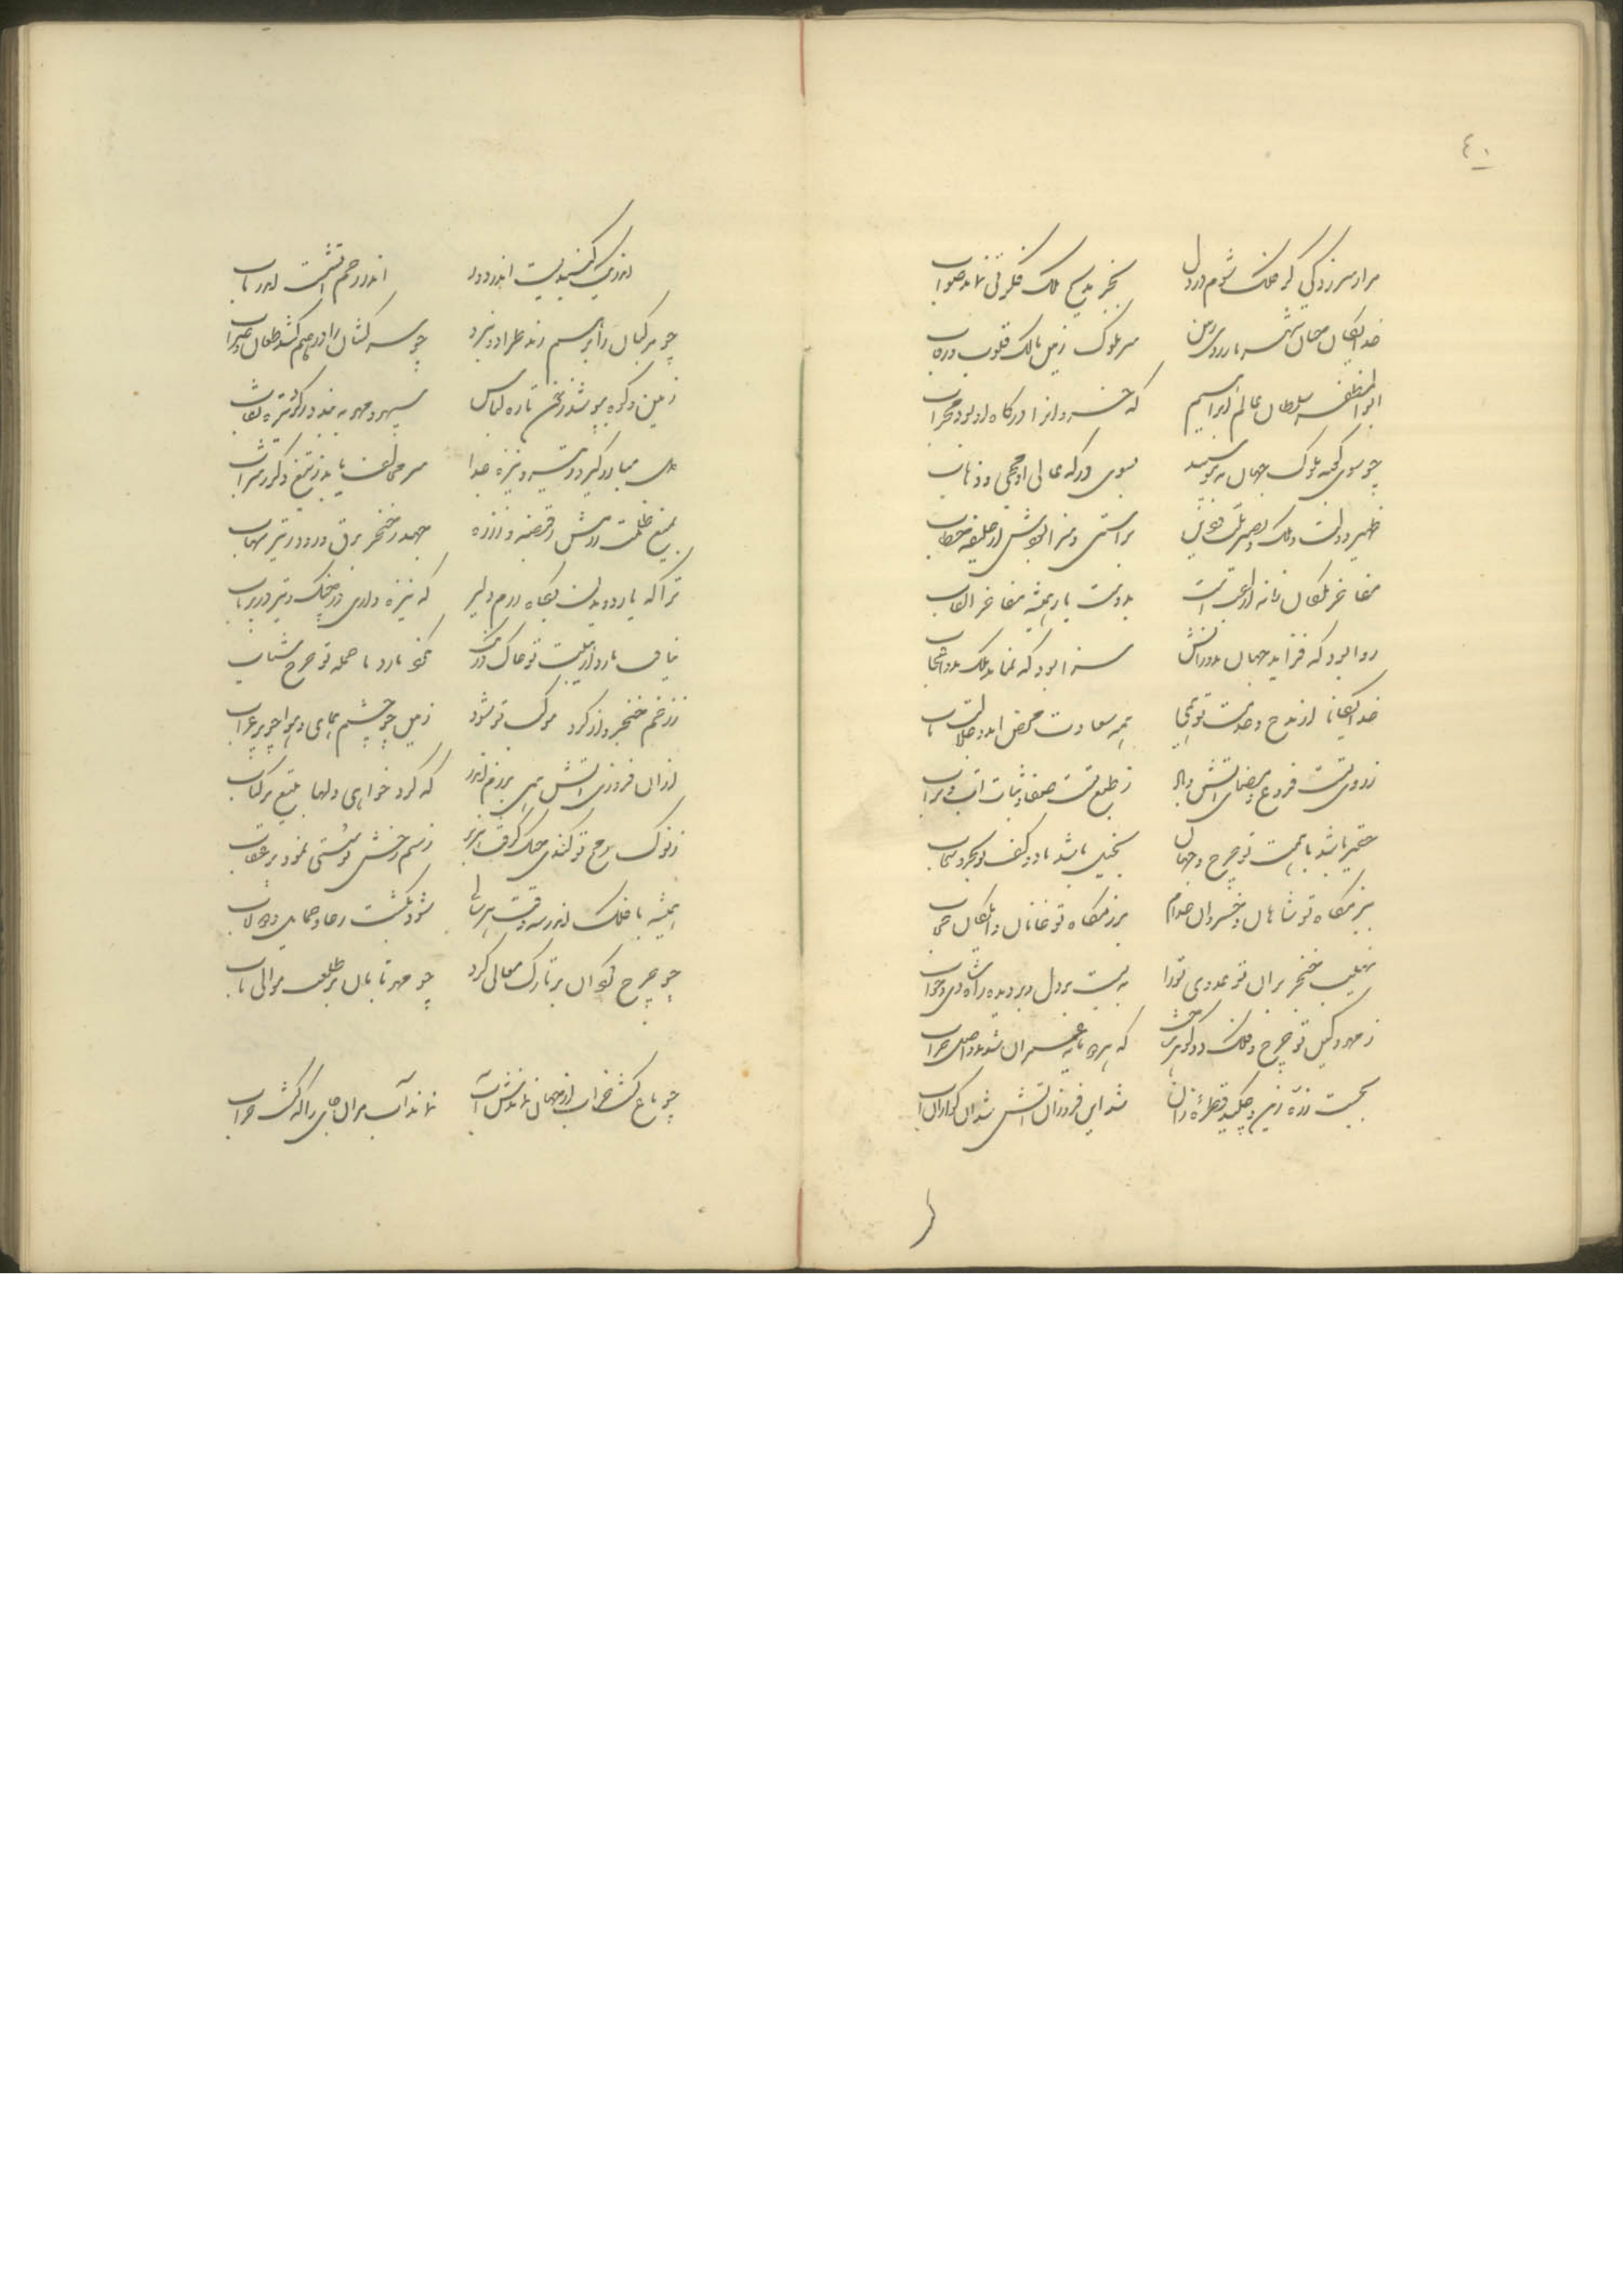 ٤٠
مرا سزد کی گر فلک شوم در دل بجز مدیح ملک فکرتی نماند صواب
خدایگان جهان شهریار روی زمین سر ملوک زمین مالک قلوب و رقاب
ابوالمظفر سلطان عالم ابراهیم که خسروان را درگاه او بود محراب
چو سوی کعبه ملوک جهان همی پویند بسوی درگه عالی او مجیء و ذهاب
ظهیر دولت و ملک و نصیر ملت براستی و سزا آمدش از خلیفه خطاب
مفاخر ملکان زمانه از لقب است بدوست باز همیشه مفاخر القاب
روا بود که فزاید جهان سزا بود که نماید ملک بدو اعجاب
خدایگانا از مدح و خدمت تو همی همه سعادت محض آمد و جلالت ناب
ز روی تست فروغ و ضیای آتش و ز طبع تست صفا و ثبات آب و تراب
حقیر باشد با همت تو چرخ و جهان بخیل باشد با دو کف تو بحر و سحاب
به بزمگاه تو شاهان و خسروان خدام برزمگاه تو خانان و ایلکان حجاب
نهیب خنجر بران تو عدوی تو را ببست بر دل و بر دیده راه شادی و خواب
ز مهر و کین تو چرخ و فلک دو گوهر ساخت که هر دو مایه عمران شدند و اصل خراب
بجست ذره زین و چکید قطره از آن شد این فروزان آتش شد آن گوارا آب
ازین کنیدیست اندر دود اندر رحم آتشست اندر ناب
چو مرکبان را بر سم زند طراد و نبرد چو سرکشان را درهم کشد طعان و ضراب
زمین و که بپوشد ز خون تازه لباس سپهر و مهر ببندد ز گرد تیره نقاب
مبارز گیرد ز تیر و نیزه جدا سر مخالف یابد ز تیغ و گرز شراب
بتیغ ظلمت روشن ز قبضه و ز زره جهد ز خنجر برق و رود ز تیر شهاب
ترا که یارد دیدن بگاه رزم دلیر که نیزه داری در چنگ و تیر در پرتاب
نیافت یارد از هیبت تو خاک درنگ نکو نیارد با حمله تو چرخ شتاب
ز زخم خنجر و از گرد موکب تو شود زمین چو چشم همای و هوا چو پر غراب
از آن فروزی آتش همی برزم اندر که کرد خواهی دلها بتیغ تیز کباب
ز نوک رمح تو کندی جنگ گرفت هژبر ز سم رخش تو سستی نمود پر عقاب
همیشه تا فلک اندر سه وقت هر سالی شود بگشت رحا و حمایل و دولاب
چو چرخ گردان بر تارک معالی گرد چو مهر تابان بر طلعت موالی تاب
چو باغ گشت خراب از خزان نماندش آب نماند آب مر آن جای را که گشت خراب